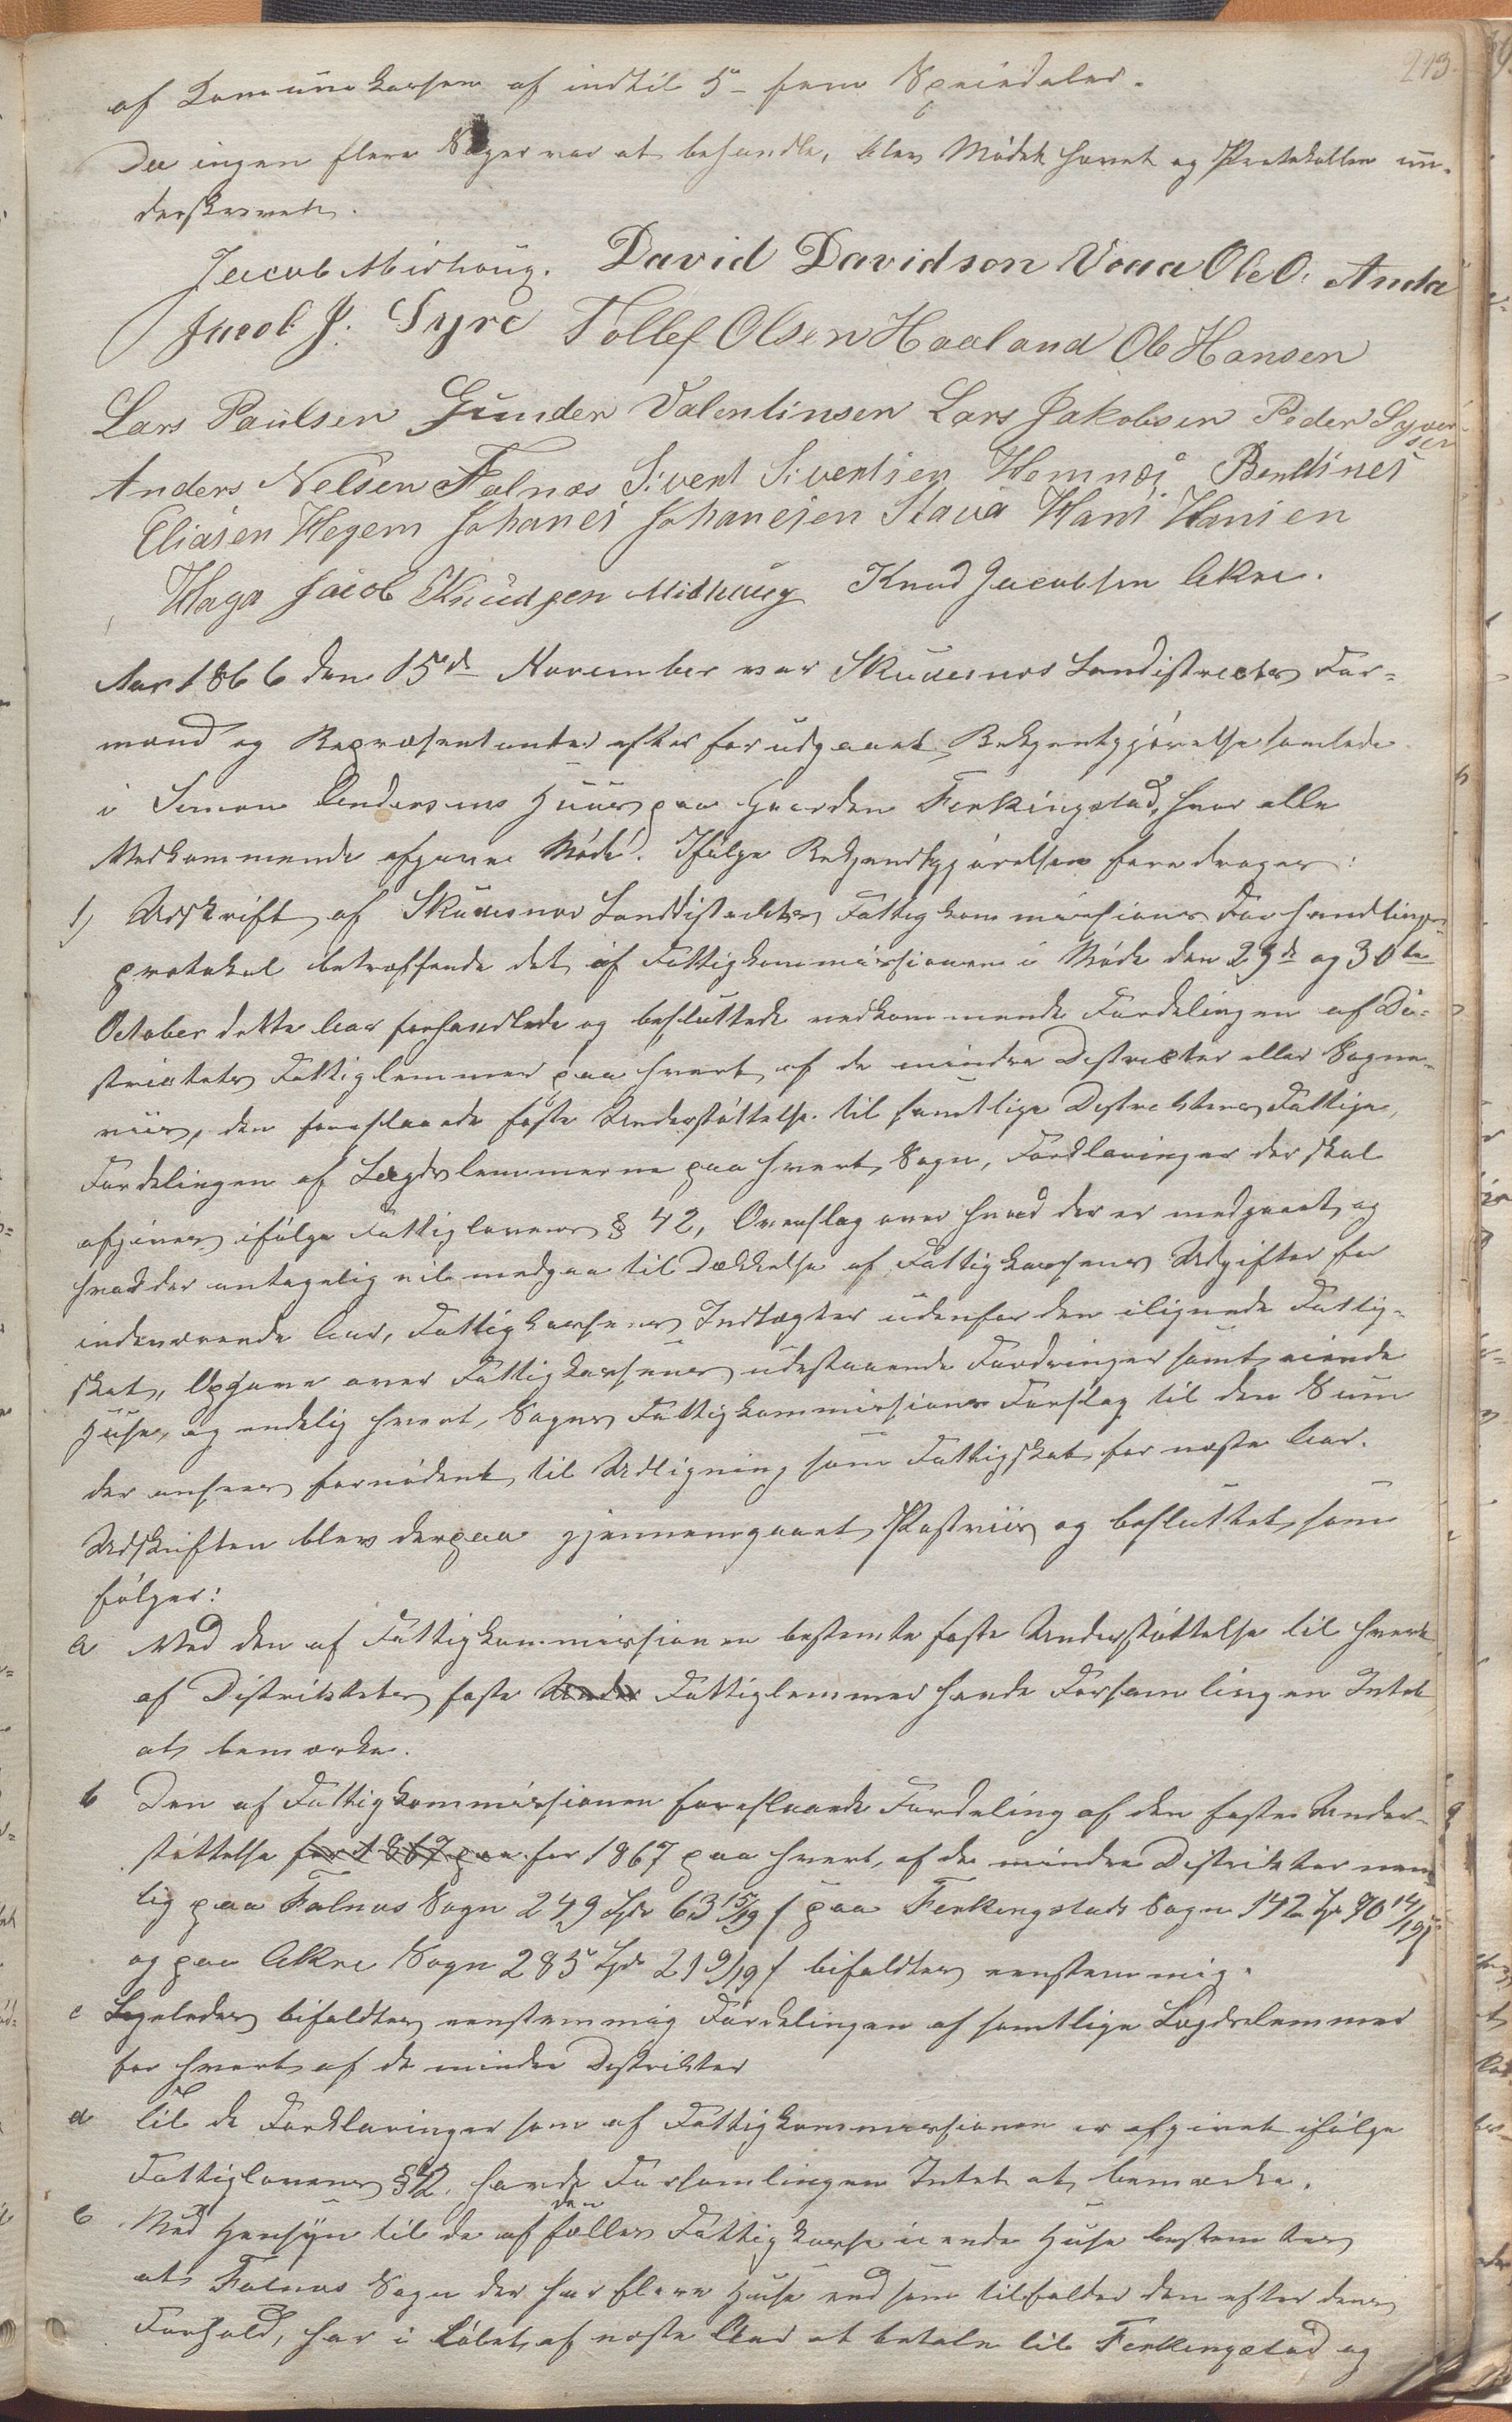 213.
af Kommunekassen af indtil 5 – fem Speciedaler.
Da ingen flere Sager var at behandle, blev Mødet hævet og Protokollen un-
derskrevet.
Jacob Midhaug. David Davidson Vaaa Ole O. Anda
Jacob J. Syre Tollef Olsen Haaland Ole Hansen
Lars Paulsen Gunder Valentinsen Lars Jakobsen Peder Syver-
sen
Anders Nelsen Falnæs Sivert Sivertsen Hemnæs Bendtines
Eliasen Hegem Johanes Johanesen Stava Hans Hansen
Haga Jacob Knudsen Midhaug Knud Jacobsen Akre.
Aar 1866 den 15de November var Skudesnæs Landdistrects For-
mænd og Repræsentanter efter forudgaaet Bekjentgjørelse samlede
i Simon Andersens Huus paa Gaarden Ferkingstad, hvor alle
Vedkommende afgave Møde. Ifølge Bekjendtgjørelsen foredroges:
1) Udskrift af Skudesnæs Landdistrikts Fattigkommissions Forhandlings-
protokol betræffende det af Fattigkommissionen i Møde den 29de og 30te
October dette Aar forhandlede og besluttede vedkommende Fordelingen af Di-
strictets Fattiglemmer paa hvert af de mindre Districter eller Sogne-
viis, den foreslaaede faste Understøttelse til samtlige Districtets Fattige,
Fordelingen af Lægdslemmerne paa hvert Sogn, Forklaringer der skal
afgives ifølge Fattiglovens § 42, Overslag over hvad der er medgaaet og
hvad der antagelig vil medgaa til Dækkelse af Fattigkassens Udgifter for
indeværende Aar, Fattigkassens Indtægter udenfor den ilignede Fattig-
skat, Opgave over Fattigkassens udestaaende Fordringer samt eiende
Huse, og endelig hvert Sogns Fattigkommissions Forslag til den Sum
der ansees fornødent til Udligning som Fattigskat for næste Aar.
Udskriften blev derpaa gjennemgaaet Postviis og besluttet som
følger:
a Ved den af Fattigkommissionen bestemte faste Understøttelse til hvert
af Distriktets faste Under Fattiglemmer havde Forsamlingen Intet
at bemærke.
b Den af Fattigkommissionen foreslaaede Fordeling af den faste Under-
støttelse for 1867 paa for 1867 paa hvert af de mindre Distrikter nem-
lig paa Falnæs Sogn 249 Spd 63 15/19 ß paa Ferkingstads Sogn 142 Spd 70 14/19 ß
og paa Akre Sogn 285 Spd 21 9/19 ß bifaldtes eenstemmig.
c Ligeledes bifaldtes eenstemmig Fordelingen af samtlige Lægdslemmer
for hvert af de mindre Distrikter
d Til de Forklaringer som af Fattigkommissionen er afgivet ifølge
Fattiglovens § 42. havde Forsamlingen Intet at bemærke.
e Med Hensyn til de af den fælles Fattigkasse eiende Huse bestemtes
at Falnæs Sogn der har flere Huse end som tilfalder den efter dens
Forhold, har i Løbet af næste Aar at betale til Ferkingstad og